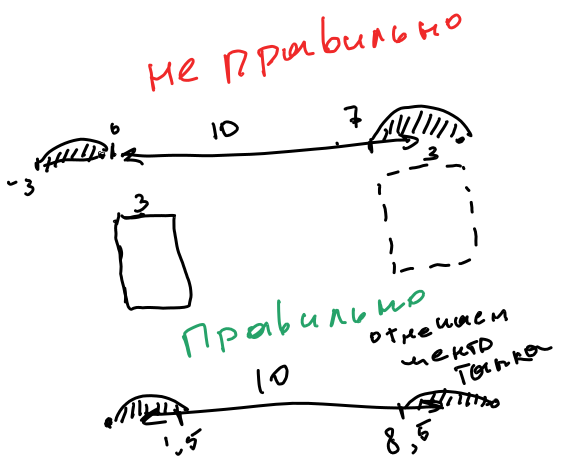 не правильно
0 10 7
-3 3
3
Правильно
отнечаем
центр
танка
10
1,5 8,5